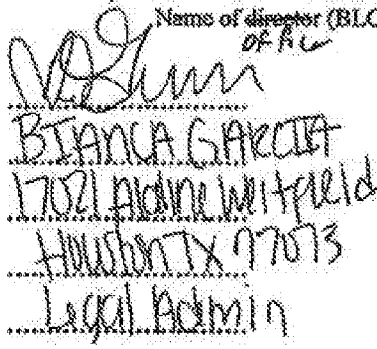 Name of director (BLO
BIANCA GARCIA
17021 Aldine Westfield
Houston TX 77073
Legal Admin